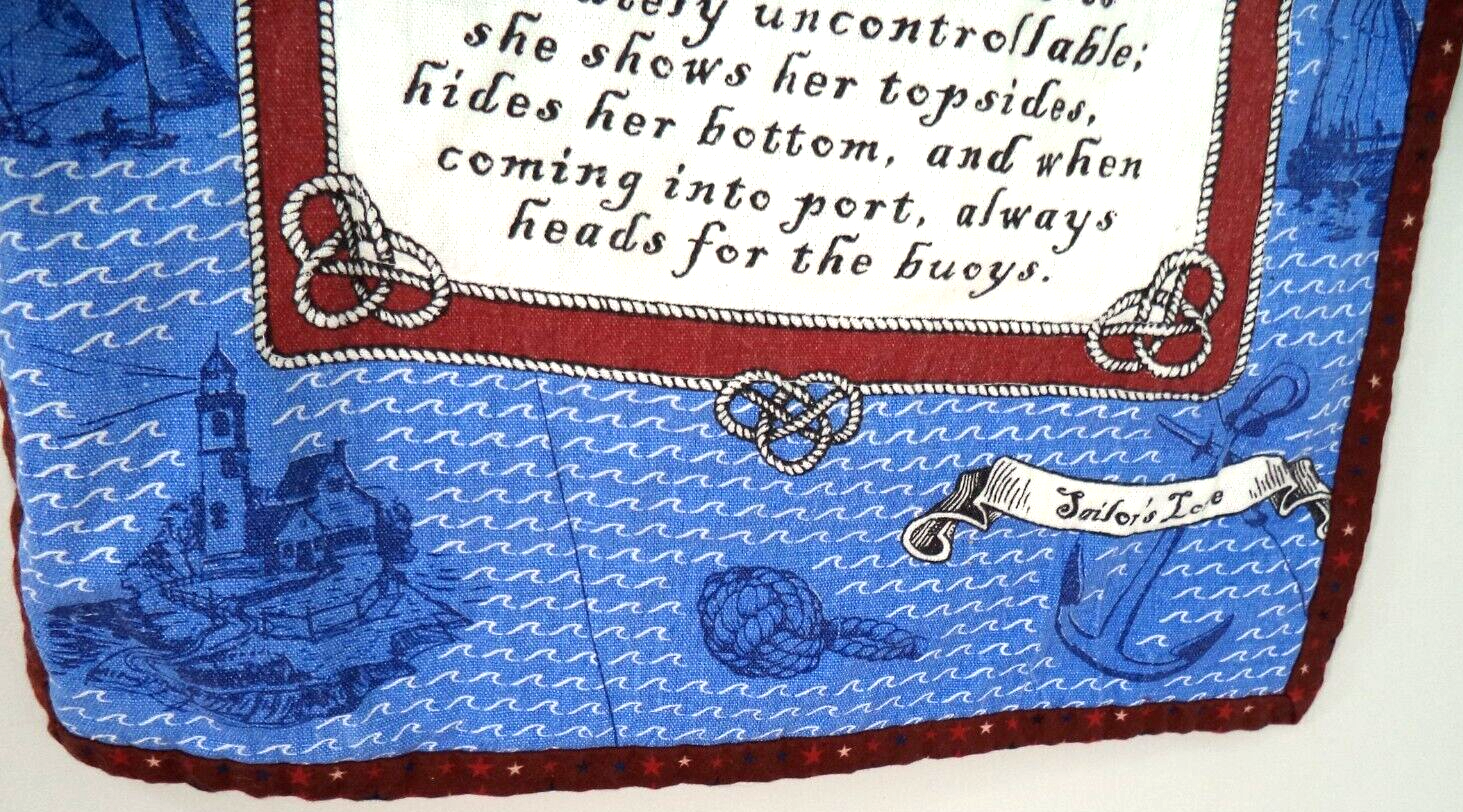 uncontrollable;
she shows her topsides,
hides her bottom, and when
coming into port, always
heads for the buoys.
Sailor's